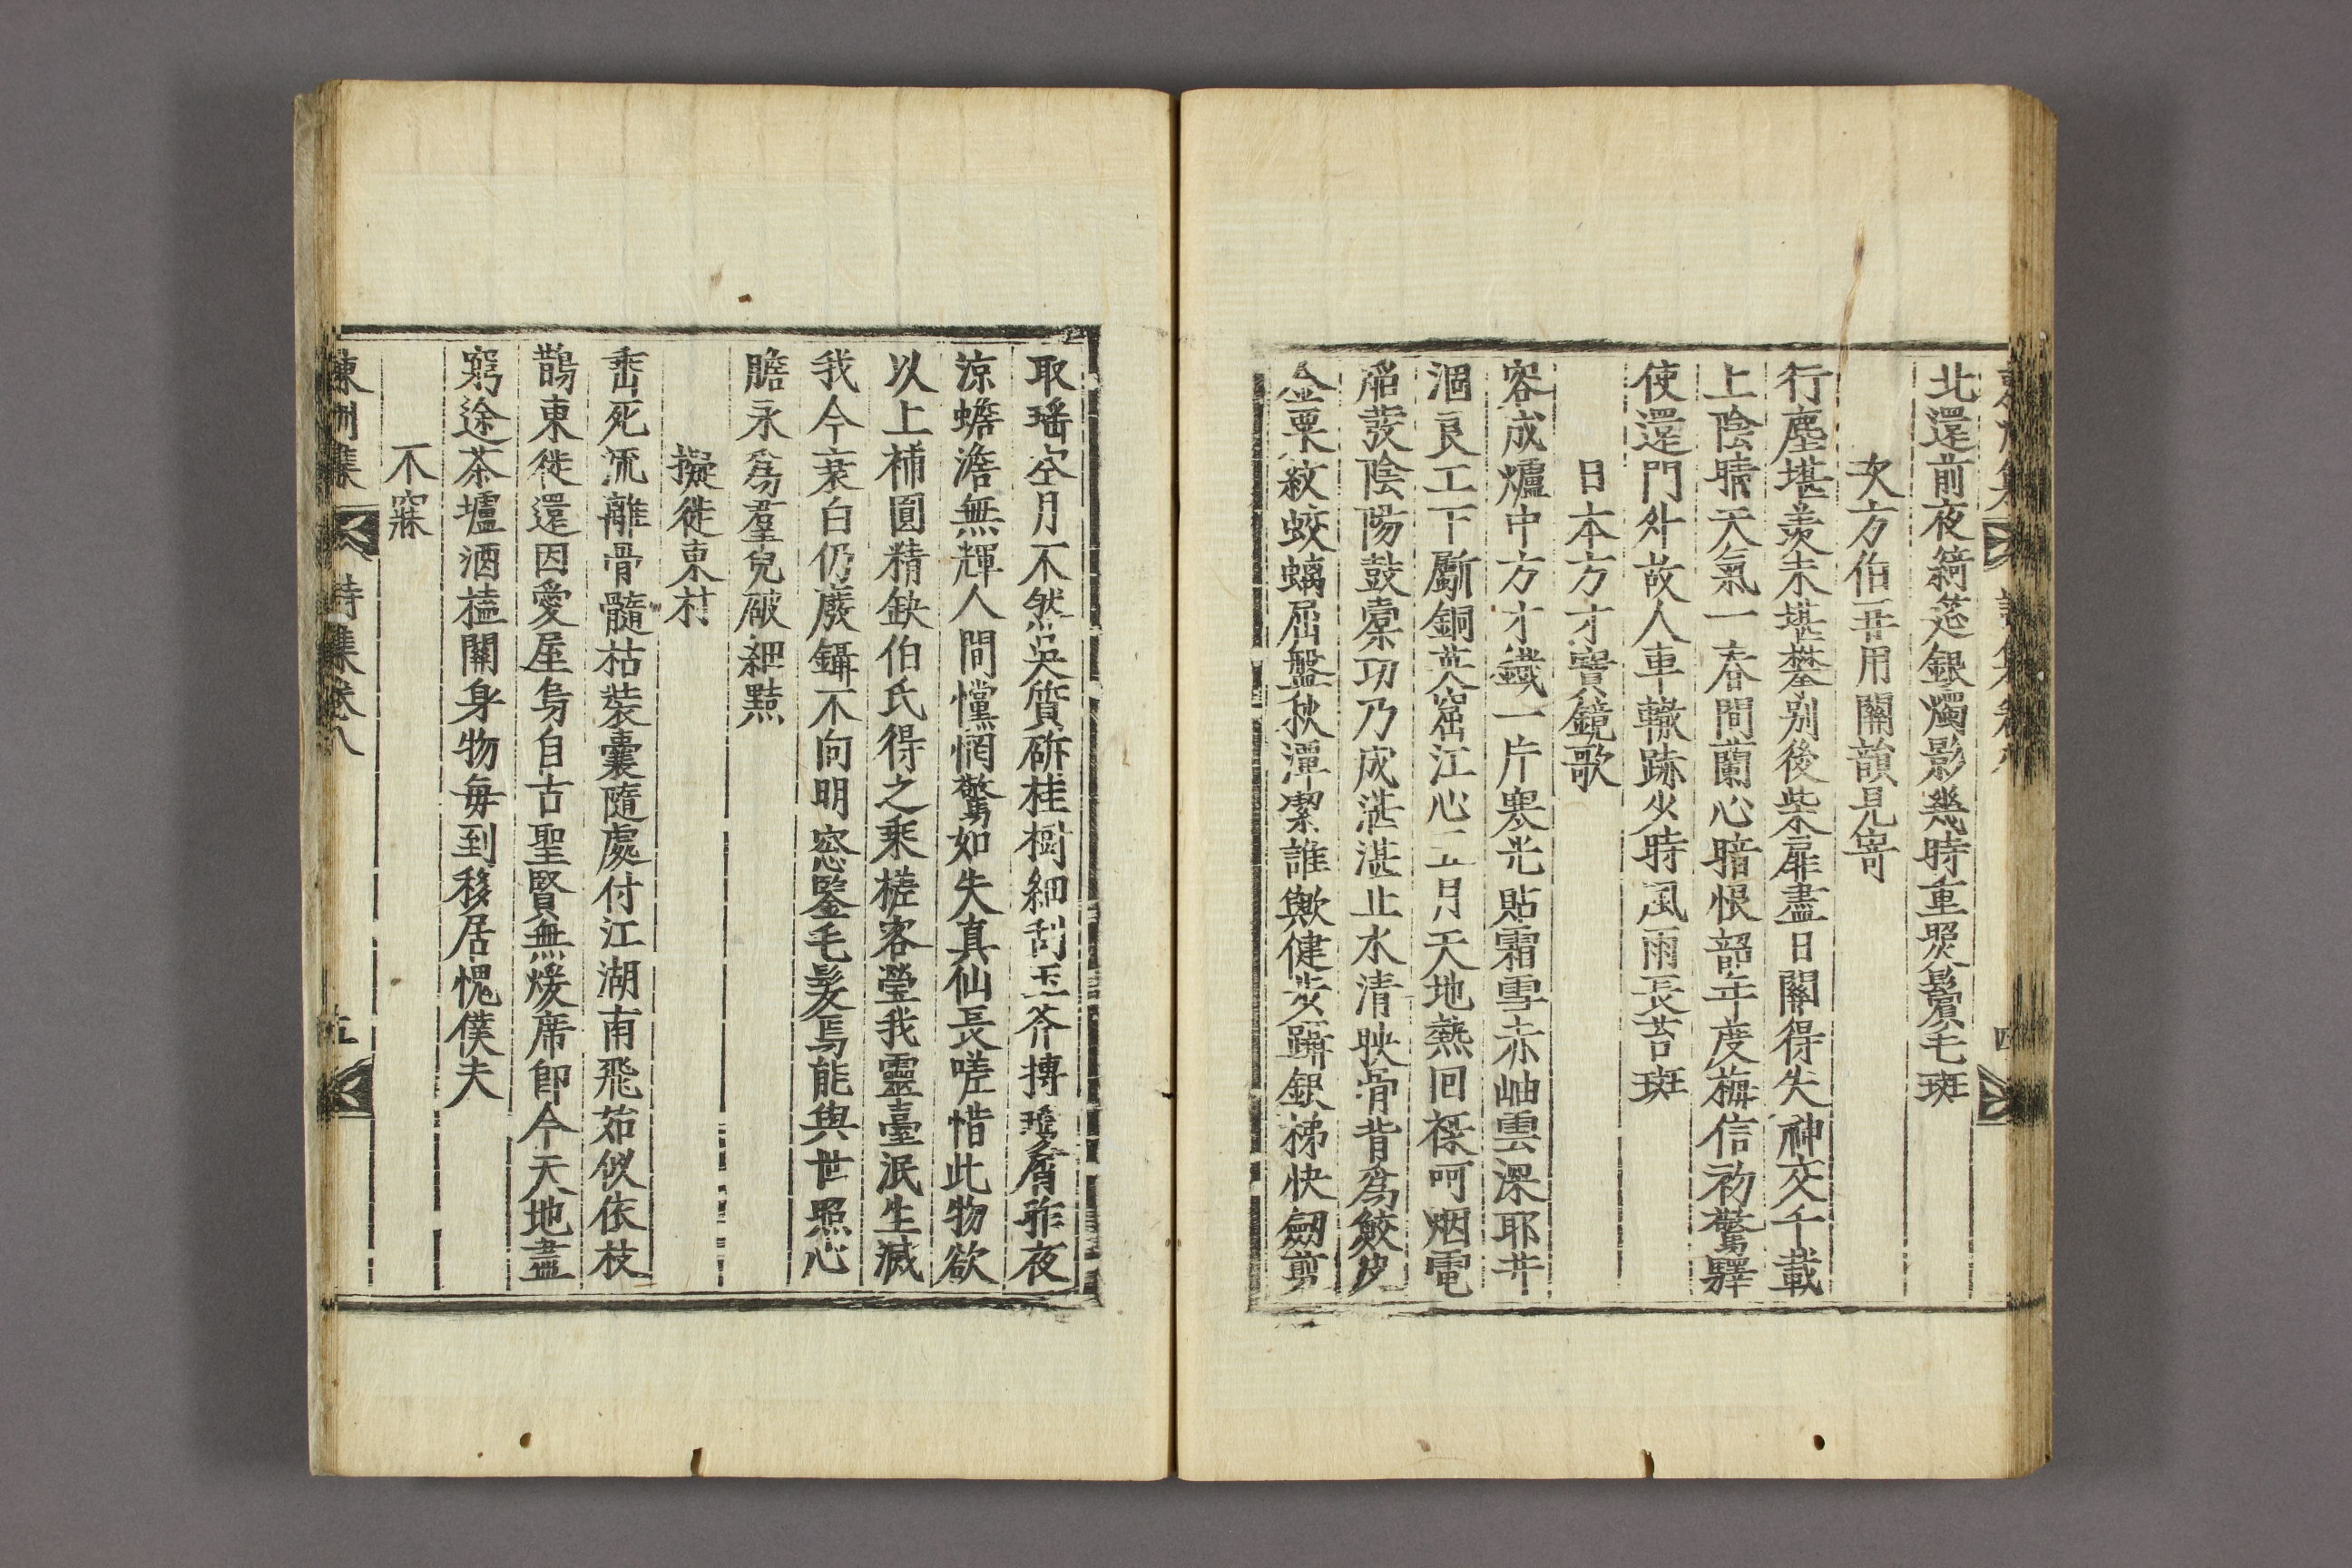 北還前夜綺筵銀燭影幾時重照鬢毛斑
次方伯再用關韻見寄
行塵堪羡未堪攀別後柴扉盡日關得失神交千載
上陰晴天氣一春間蘭心暗恨韶年度梅信初驚驛
使還門外故人車轍跡少時風雨長苔斑
日本方寸寶鏡歌
容成爐中方寸鐵一片寒光貼霜雪赤岫雲深耶井
涸良工下斸銅英窟江心五月天地熱回祿呵烟電
船發陰陽鼓槖功乃成湛湛止水清映骨背爲鮫皮
金粟紋蛟螭屈盤秋潭潔誰歟健步躡銀梯快劒剪
取瑤空月不然吳質斫桂樹細刮玉斧摶瓊屑昨夜
凉蟾澹無輝人間戃惘驚如失真仙長嗟惜此物欲
以上補圓精缺伯氏得之乘槎客瑩我靈臺泯生滅
我今衰白仍廢鑷不向明窓鑒毛髮焉能與世照心
膽永爲羣兒破細黠
擬徙東村
垂死流離骨髓枯裝囊隨處付江湖南飛茹似依枝
鵲東徙還因愛屋烏自古聖賢無煖席卽今天地盡
窮途茶壚酒榼關身物每到移居愧僕夫
不寐
東州集 詩集卷八 五